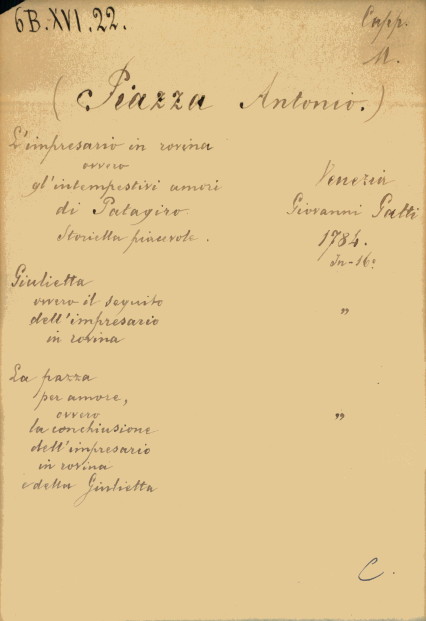 6B.XVI.22.
Capp.
M.
(Piazza Antonio.)
L'impresario in rovina
ovvero
gl'intempestivi amori
di Patagiro
Storiella piacevole.
Venezia
Giovanni Gatti
1784.
In-16º
Giulietta
ovvero il seguito
dell'impresario
in rovina
"
La pazza
per amore,
ovvero
la conchiusione
dell'impresario
in rovina
e della Giulietta
"
C.